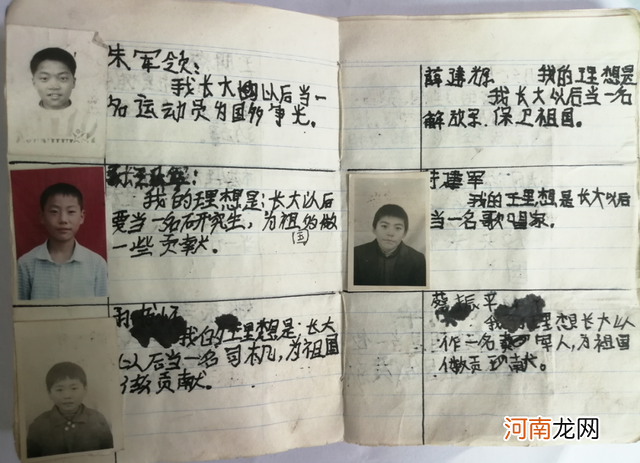 朱军领:
我长大以后当一
名运动员为国多争光。
我的理想是:长大以后
要当一名研究生,为祖国做
一些贡献。
我的理想是:长大
以后当一名司机,为祖国
做贡献。
薛建辉 我的理想是
我长大以后当一名
解放军.保卫祖国。
建军
我的理想是长大以后
当一名歌唱家。
振平
我的理想长大以
作一名军人,为祖国
做贡献。
河南龙网